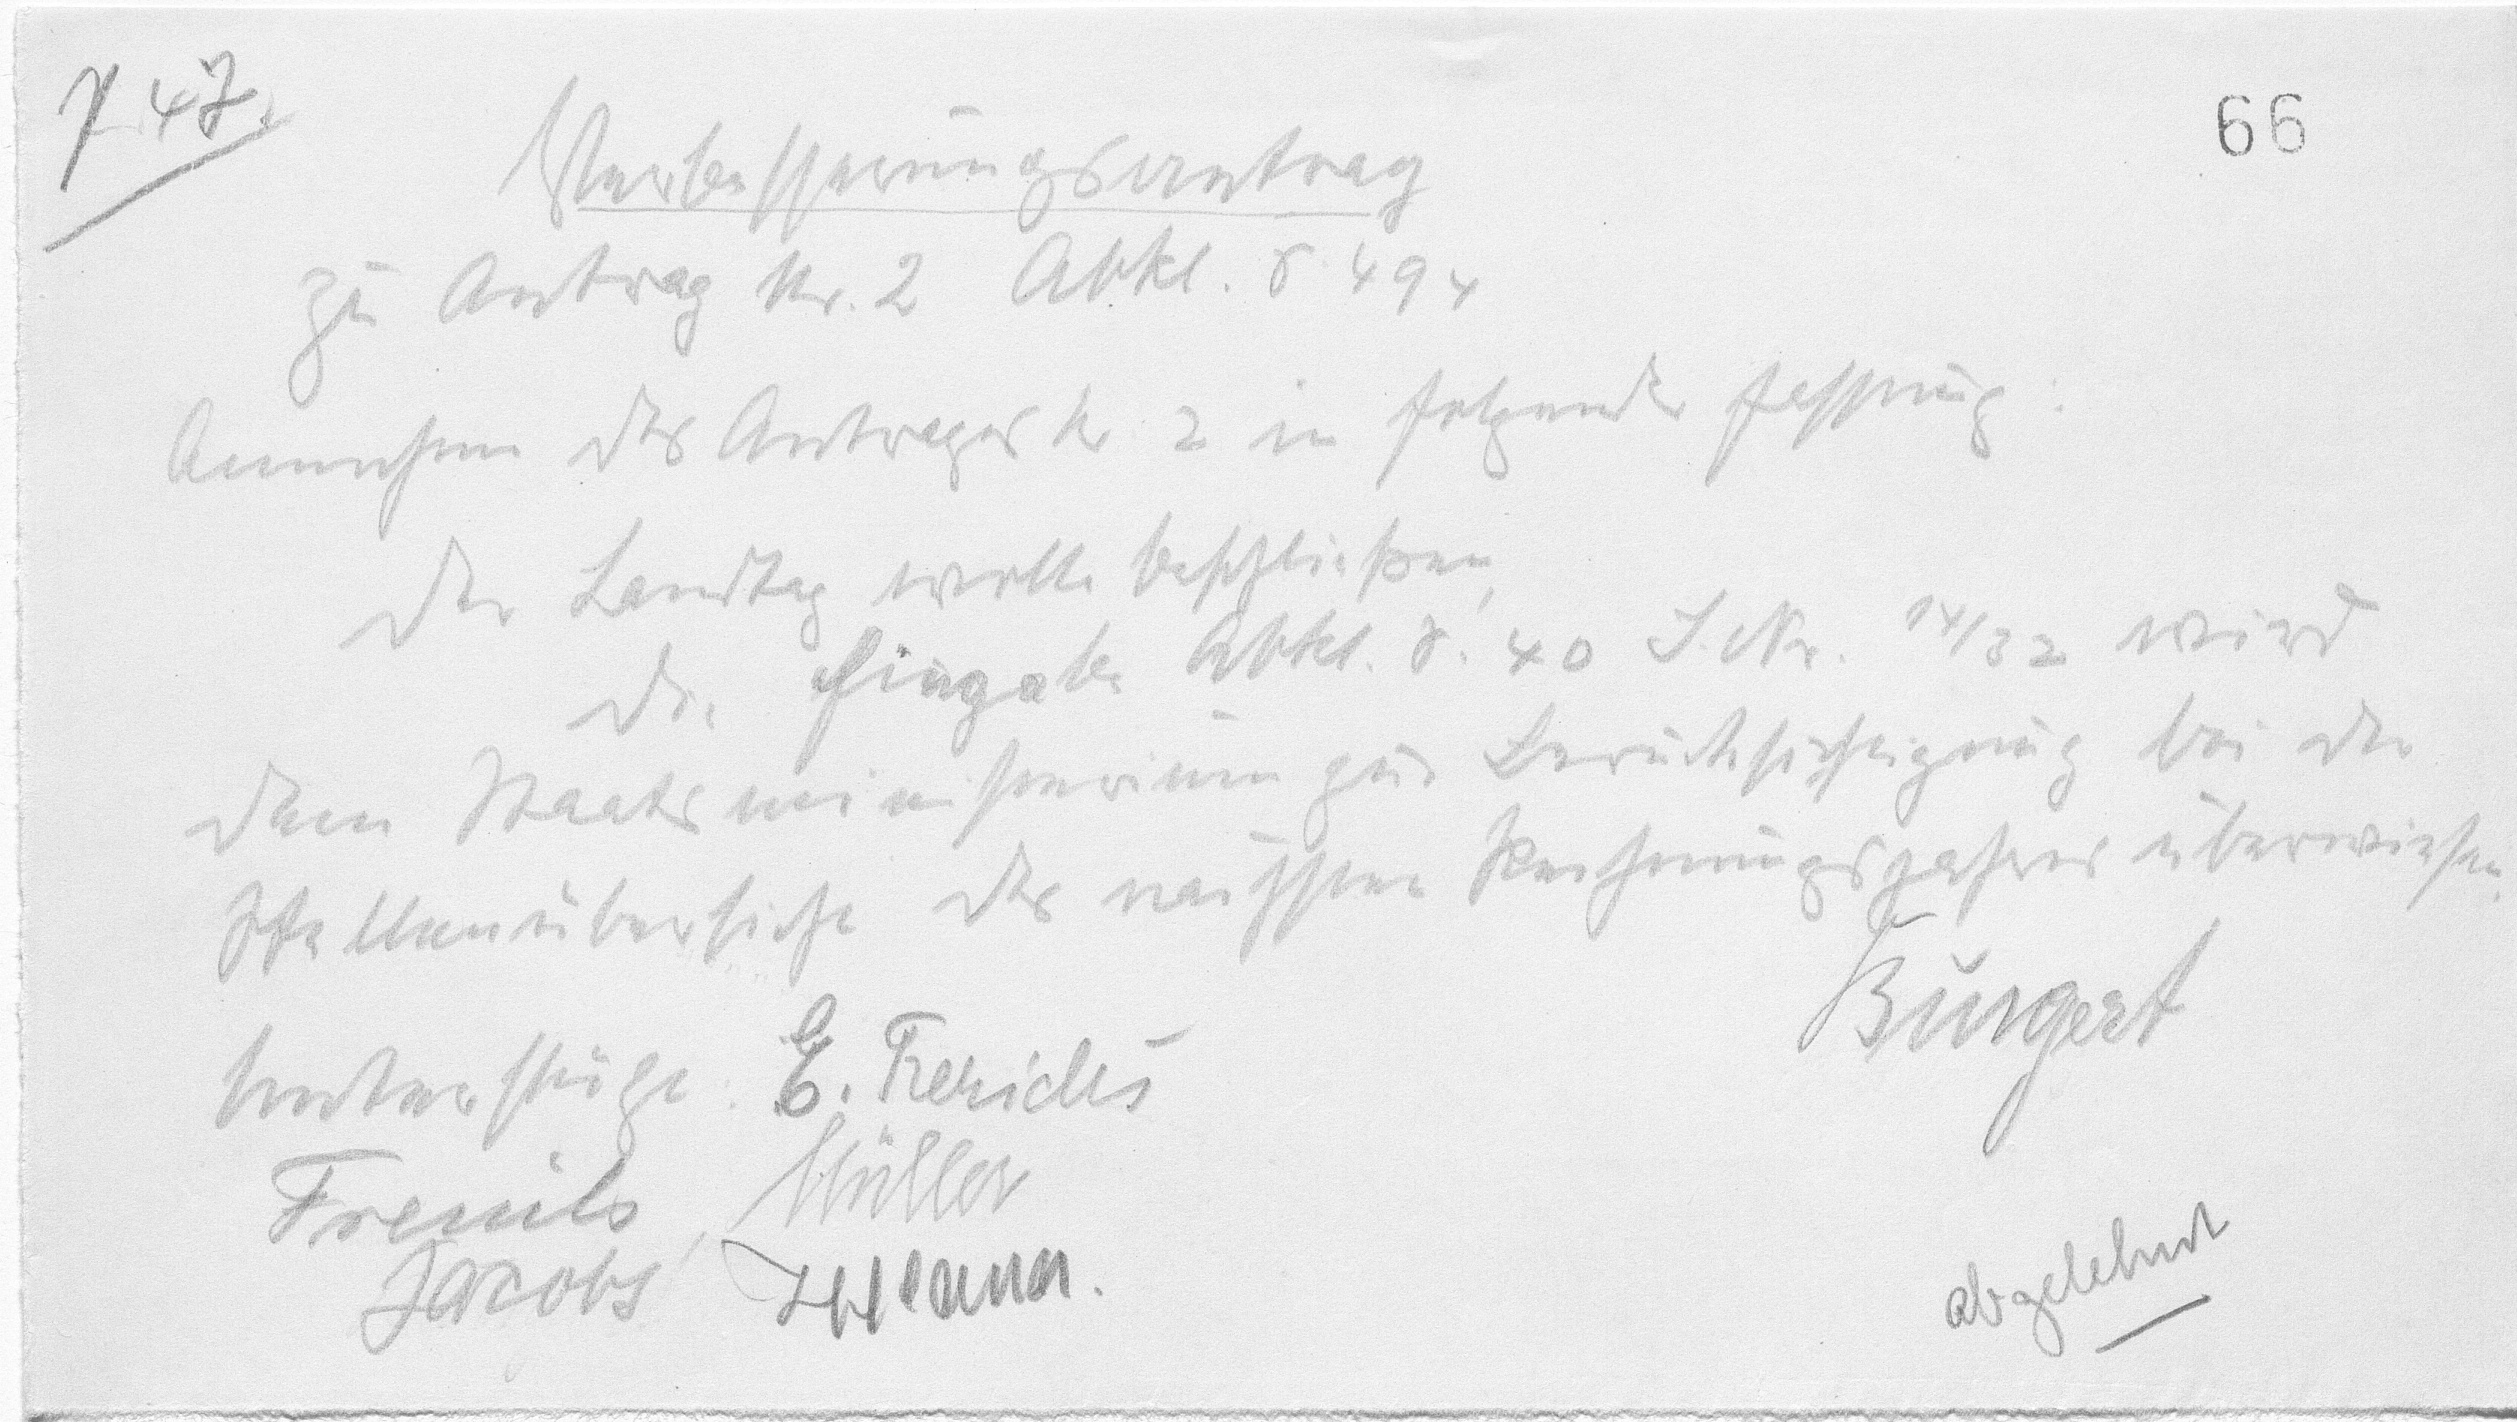 747.
66
Verbesserungsantrag
zu Antrag Nr. 2 Abkl. S. 494
Annahme des Antrages Nr 2 in folgender Fassung:
Der Landtag wolle beschließen,
die Eingabe Abkl. S. 40 J. Nr. 14/32 wird
dem Staatsministerium zur Berücksichtigung bei der
Stellenübersicht des nächsten Rechnungsjahres überwiesen.
Bürgert
Unterstützt: E. Frerichs
Müller
Jacobs
abgelehnt